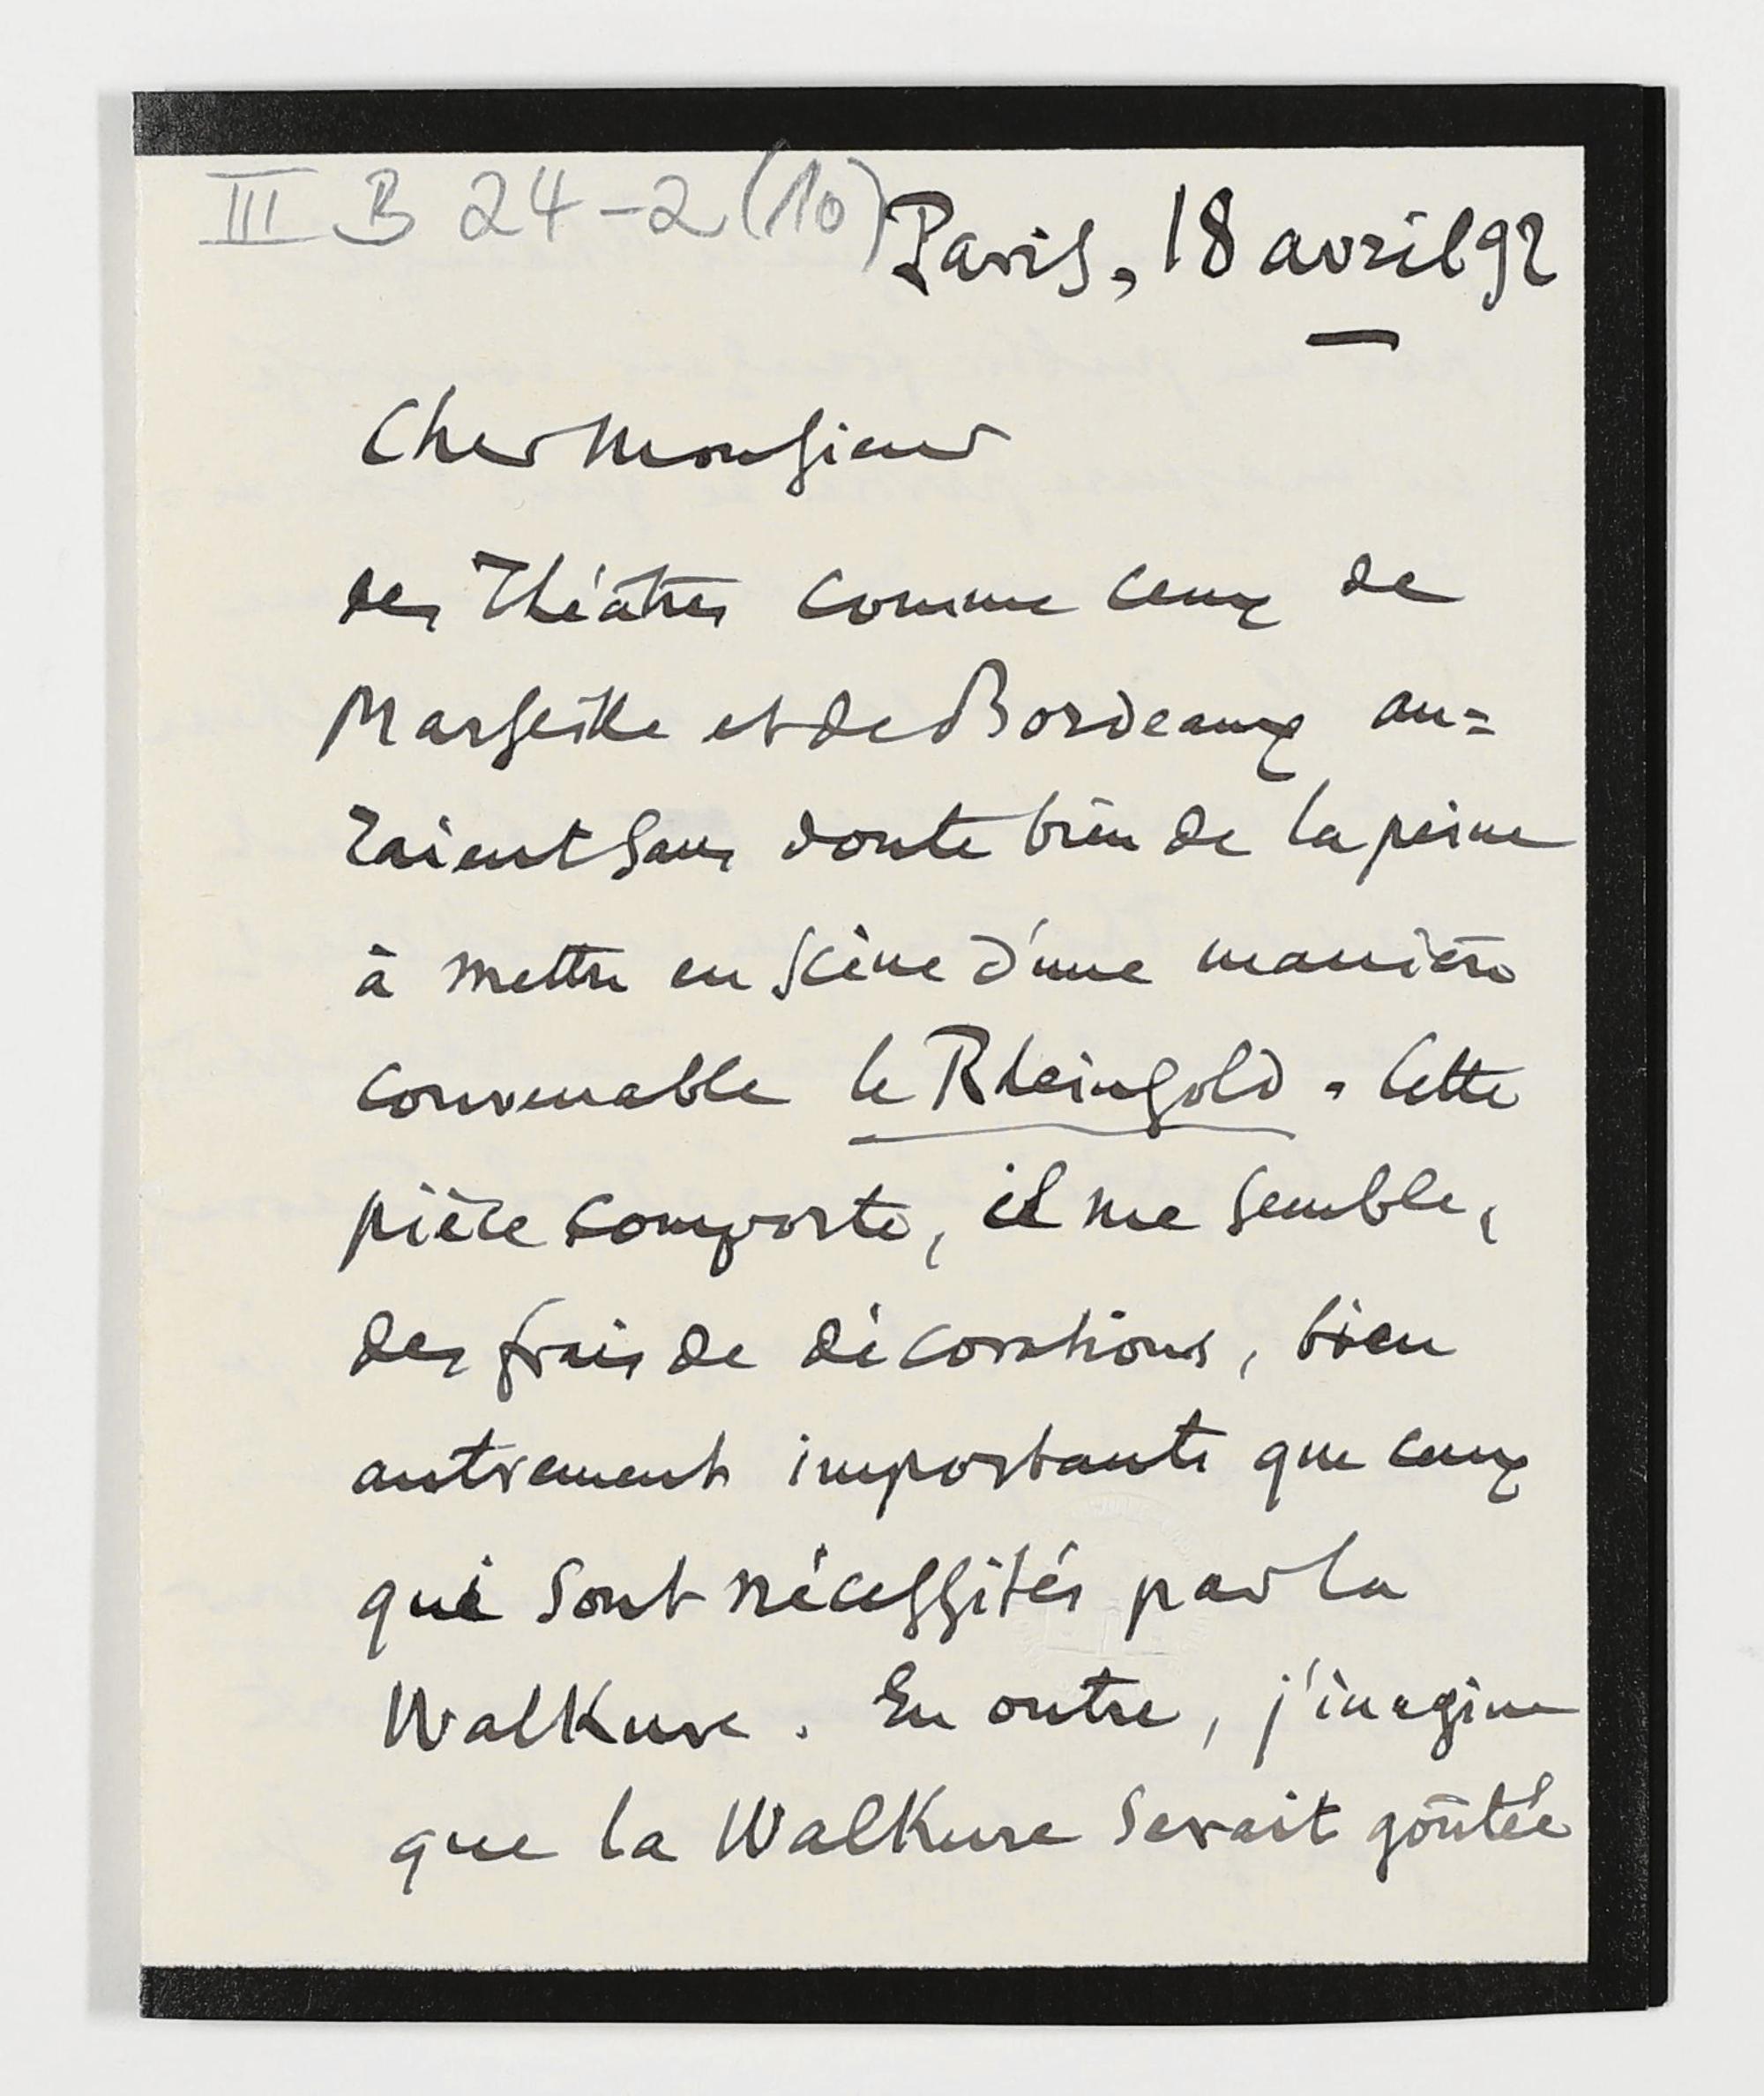 III B 24-2 (10)
Paris, 18 avril 92
Cher Monsieur
des Théâtres comme ceux de
Marseille et de Bordeaux au=
raient sans doute bien de la peine
à mettre en scène d'une manière
convenable le Rheingold. Cette
pièce comporte, il me semble,
des frais de décorations, bien
autrement importants que ceux
qui sont nécessités par la
Walkure. En outre, j'imagine
que la Walkure serait goûtée